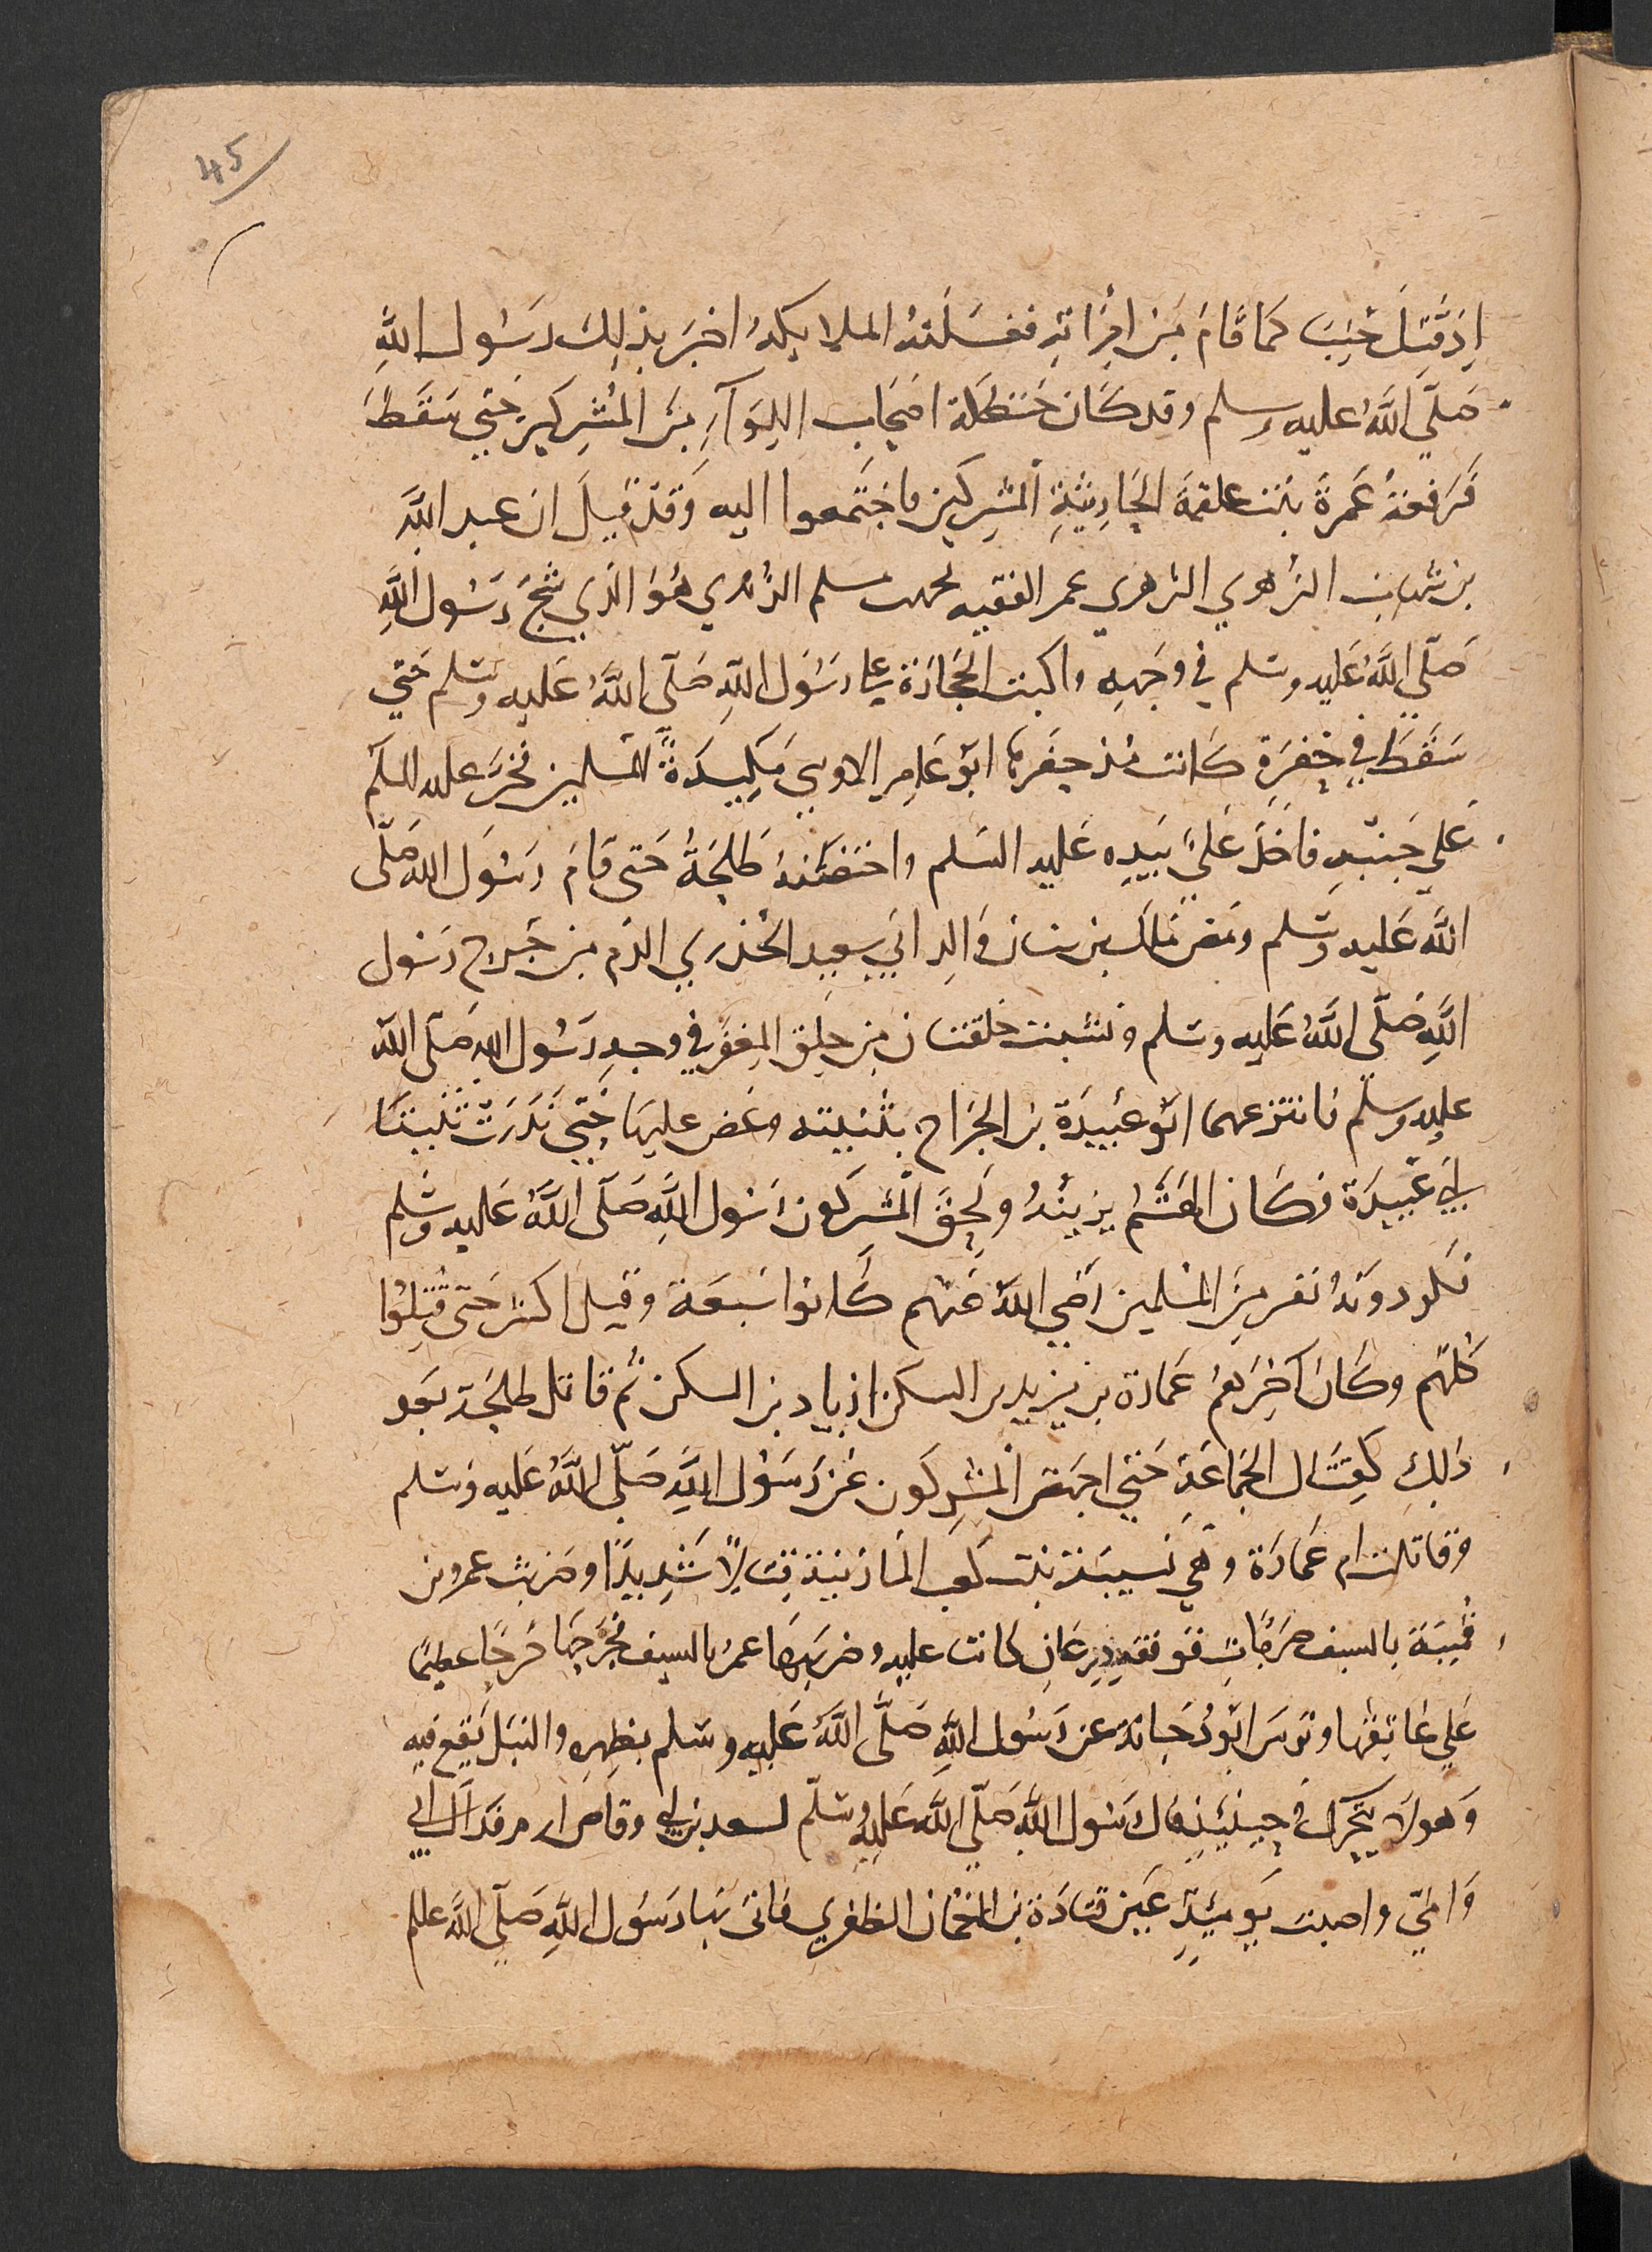 45
اِذ قُتِلَ جُنُبَ كَمَا قَامَ مِنِ امْرَاتِهِ فغسَلَتهُ الملايكهُ اخبَرَ بذلِكَ رسُول اللهِ
صَلّي اللهُ عليه وسلم وقد كَان حَنظَلَة اصحَابِ اللِوَآءِ مِنَ المُشرِكينَ حَتي سَقَطَ
فَرفعتهُ عَمرةَ بنت علقمَة الحَارِثيَّةِ المشرِكين فاجتَمعوا اليه وَقَد قيلَ ان عبد اللهَ
بن شهاب الزهري الزهري عم الفقيه محمد بن مسلم الزُهري هُوَ الذي شَجَّ رَسُول اللهِ
صَلّي اللهُ عَليه وسَلم في وجَهِهِ واكبت الحِجَارَة علي رَسُول اللهِ صَلّي اللهُ عَليه وسَلم حَتي
سَقَطَ في حُفرَةٍ كَانت قد حفَرهَا ابَو عَامِر الاوسِي مَكِيدَةً للمُسلمين فخرَّ عليه السلم
عَلي جَنبهِ فاخذَ عَليٌ بيَدِهِ عَليه السَلم واحتضَنهُ طَلحَةُ حَتى قامَ رَسُول الله صَلّى
اللهُ عَليه وَسَلم ومَص مَالك بن سنان وَالِد ابَي سعيد الخُذرِي الدَم من جُرح رَسُول
اللهِ صَلّي اللهُ عَليه وسَلم ونشبت حَلقتان من حَلِق المِغفَر في وجهِ رَسُول الله صَلّى الله
عليه وسلم فانتزعهما ابُو عُبيدَة بن الجَراح بثنيته وعَض عليهَا حَتي نَدَرَت ثَنيتَا
ابَي عُبيدَة فكَان الهَتَمُ يزينُهُ ولَحِقَ المُشركون رَسُول اللهِ صَلّى اللهُ عَليه وسَلم
فكر دونهُ نفر مِنَ المُسلمين رَضي اللهُ عَنهم كَانوا سَبعَة وقيل اكثر حَتى قُتِلُوا
كُلهم وكَانَ آخِرهم عَمارة بن يزيد بن السكن او زياد بن السكن ثُم قاتل طلحَة بَعد
ذلِكِ كَقِتَال الجَماعَةِ حَتي اجهَض المُشرِكون عَن رَسُول اللهِ صَلّي اللهُ عَليه وسَلم
وقاتلت ام عَمارَة وهي نَسيبَة بنت كَعب المَازنية قِتالاً شَدِيدًا وضرَبت عمرو بن
قُمِيئَة بالسيف ضَربَاتٍ فَوقَهِ دِرعَانِ كانت عليه وضربهَا عمرُ بالسيف فجَرحَهَا جُرحًا عَظيمًا
عَلي عَاتِقهَا وترسَ ابُو دُجَانَة عن رَسُول اللهِ صَلّي اللهُ عَليه وسَلم بظهرِهِ والنبل يَقع فيه
وَهو لا يتَحَرك في حِينَئذٍ قال رَسُول اللهِ صَلّي اللهُ عَليه وسَلم لسعد بن ابي وقاص ارم فداك ابي
وَامّي واصيبت يَومئذٍ عَين قتادَة بن النعمان الظفري فاتى بهَا رَسُول اللهِ صَلّي اللهُ عللم